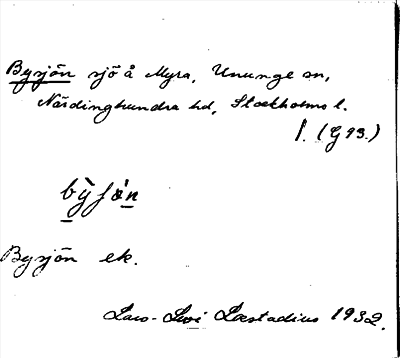 Bysjön sjö å Myra, Ununge sn,
Närdinghundra hd, Stockholms l.
1. (G 93.)
bỳʃȯn
Bysjön ek.
Lars-Levi Læstadius 1932.